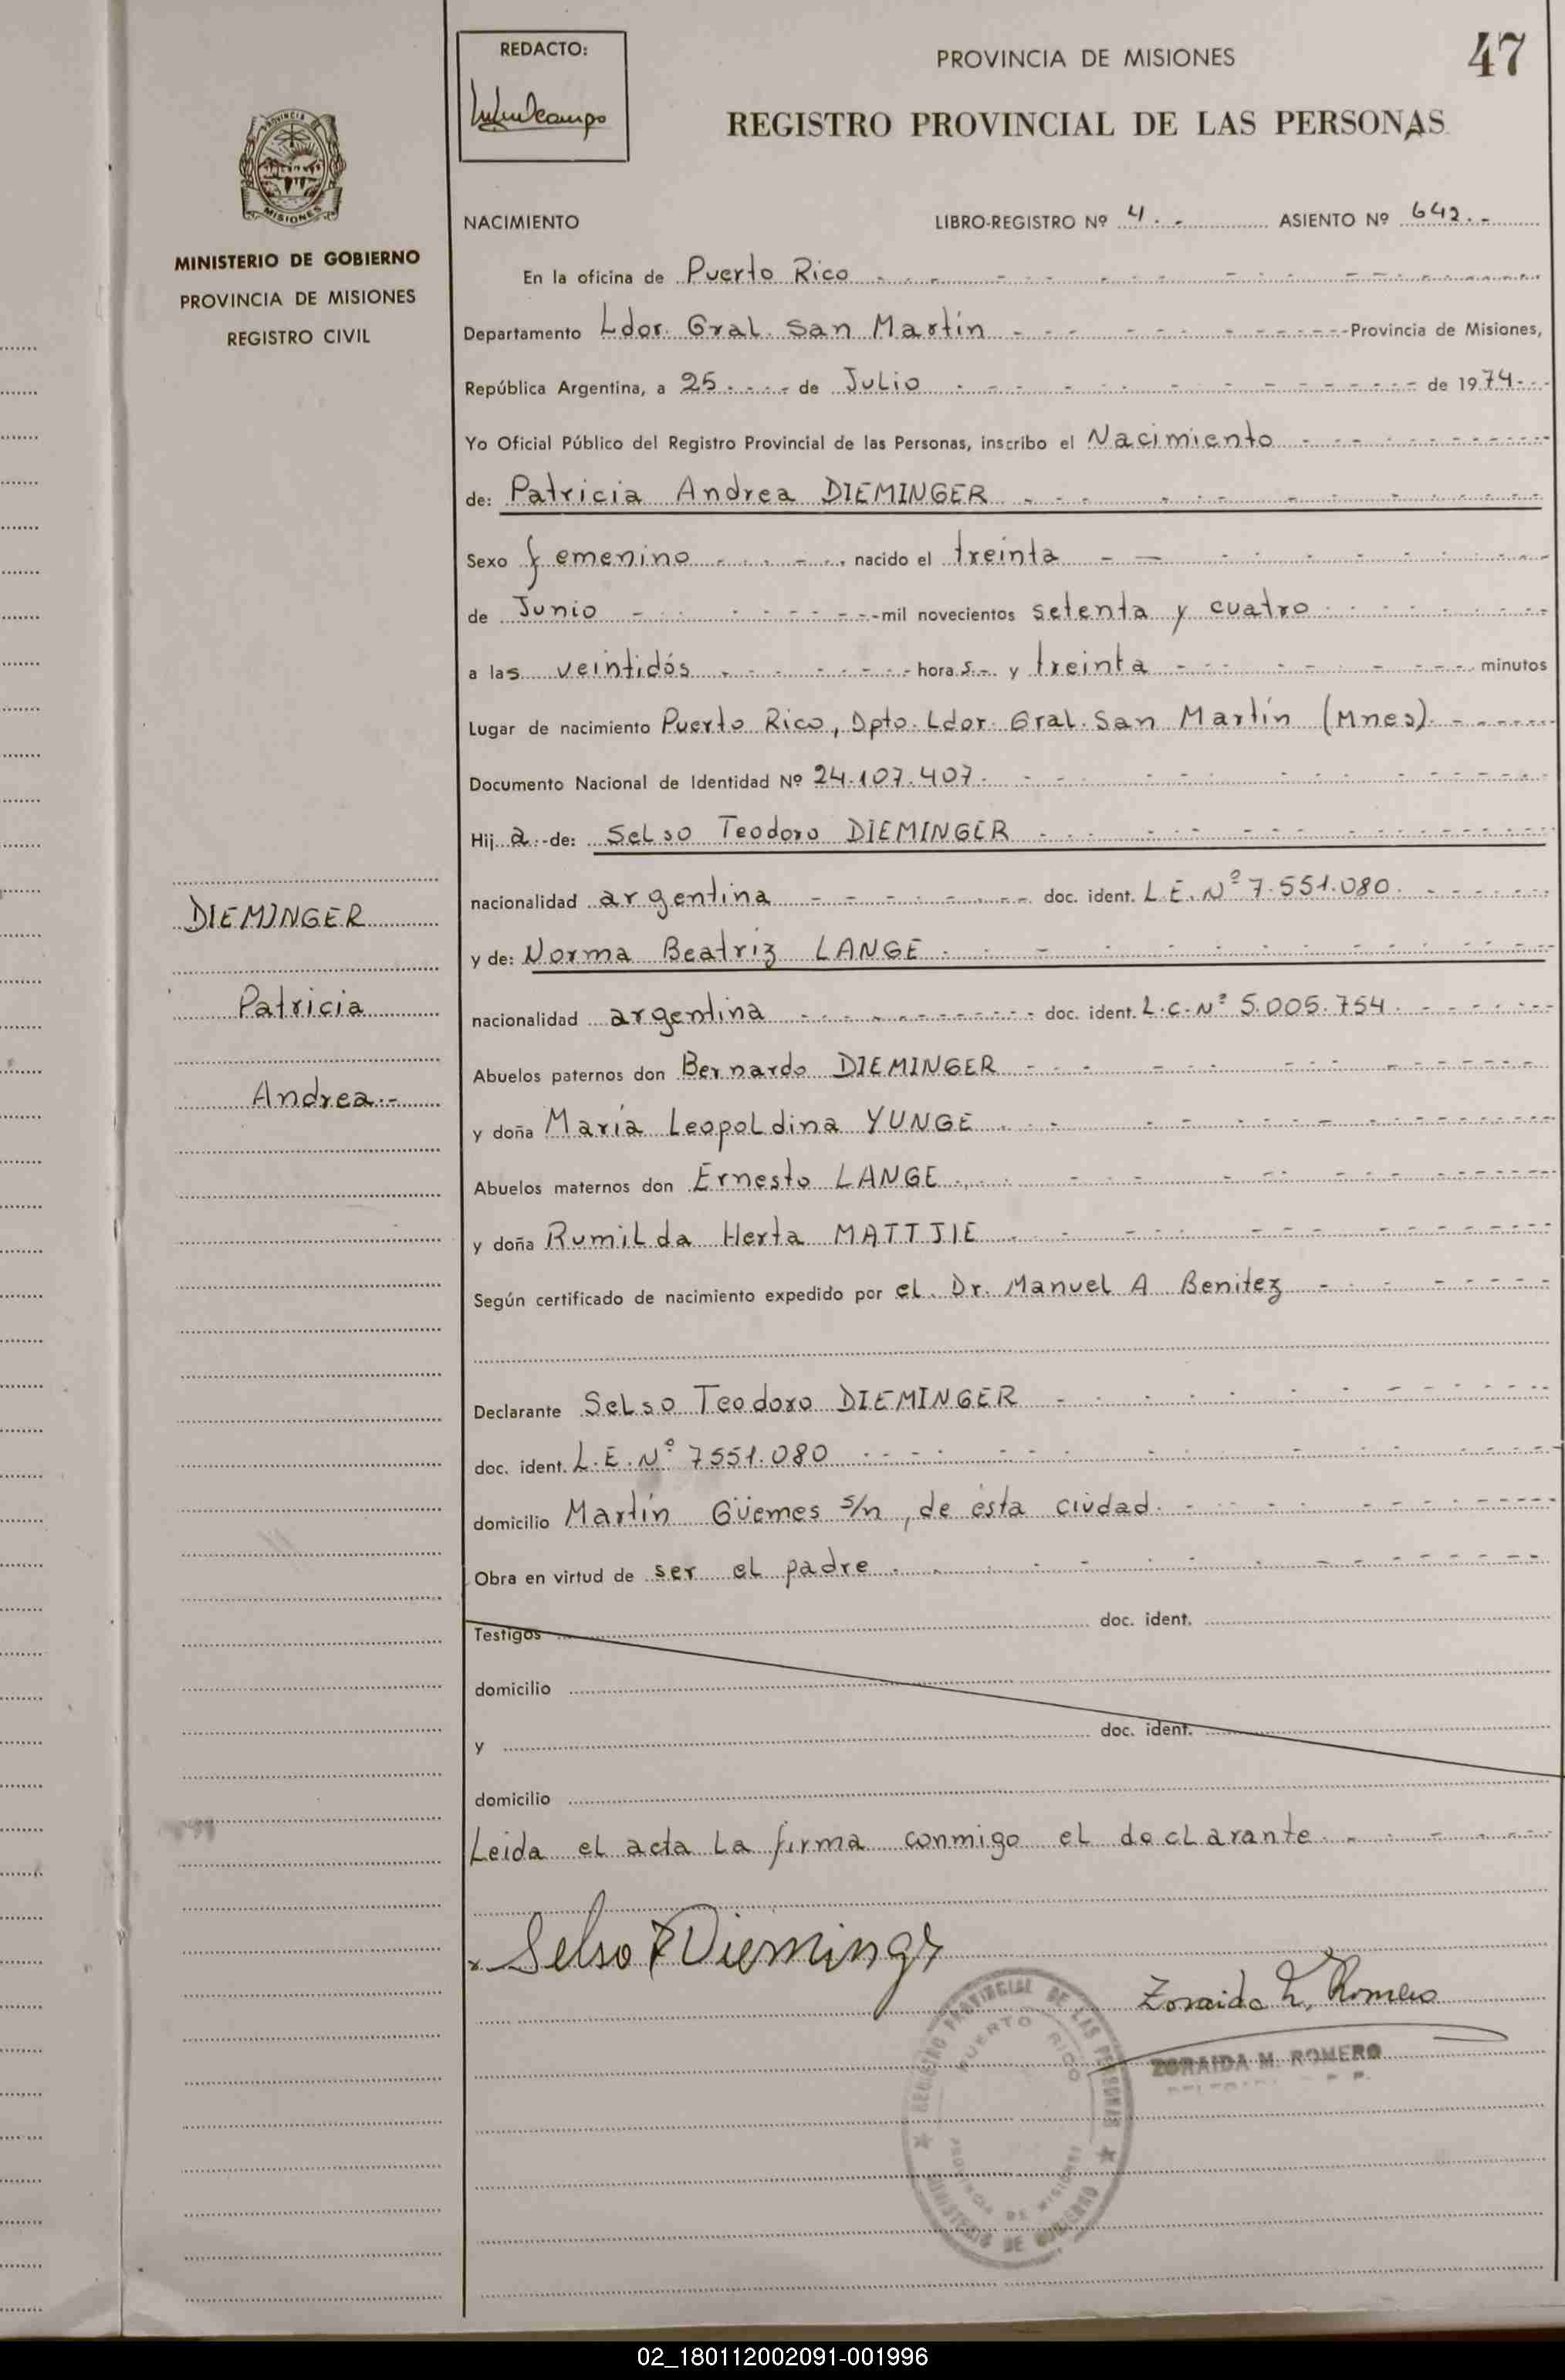 REDACTO:
PROVINCIA DE MISIONES
47
REGISTRO PROVINCIAL DE LAS PERSONAS
PROVINCIA DE
MISIONES
MINISTERIO DE GOBIERNO
PROVINCIA DE MISIONES
REGISTRO CIVIL
NACIMIENTO LIBRO-REGISTRO Nº 4.- ASIENTO Nº 642.-
En la oficina de Puerto Rico
Departamento Ldor. Gral. San Martín Provincia de Misiones,
República Argentina, a 25 de Julio de 1974
Yo Oficial Público del Registro Provincial de las Personas, inscribo el Nacimiento
de: Patricia Andrea DIEMINGER
Sexo femenino, nacido el treinta
de Junio mil novecientos setenta y cuatro
a las veintidós horas.- y treinta minutos
Lugar de nacimiento Puerto Rico, Dpto. Ldor. Gral. San Martín (Mnes).
Documento Nacional de Identidad Nº 24.107.407.
Hija.-de: Selso Teodoro DIEMINGER
nacionalidad argentina doc. ident. L.E. Nº 7.551.080.
y de: Norma Beatriz LANGE
nacionalidad argentina doc. ident. L.C. Nº 5.005.754
Abuelos paternos don Bernardo DIEMINGER
y doña María Leopoldina YUNGE
Abuelos maternos don Ernesto LANGE
y doña Rumilda Herta MATTJIE
Según certificado de nacimiento expedido por el Dr. Manuel A Benitez
Declarante Selso Teodoro DIEMINGER
doc. ident. L.E. Nº 7551.080
domicilio Martín Güemes s/n, de ésta ciudad.
Obra en virtud de ser el padre
Testigos doc. ident.
domicilio
y doc. ident.
domicilio
Leida el acta la firma conmigo el declarante
DIEMINGER
Patricia
Andrea.-
Selso T Dieminger
Zoraida M. Romero
ZORAIDA M. ROMERO
REGISTRO PROVINCIAL DE LAS PERSONAS
PUERTO RICO
PROVINCIA DE MISIONES
MINISTERIO DE GOBIERNO
02_180112002091-001996